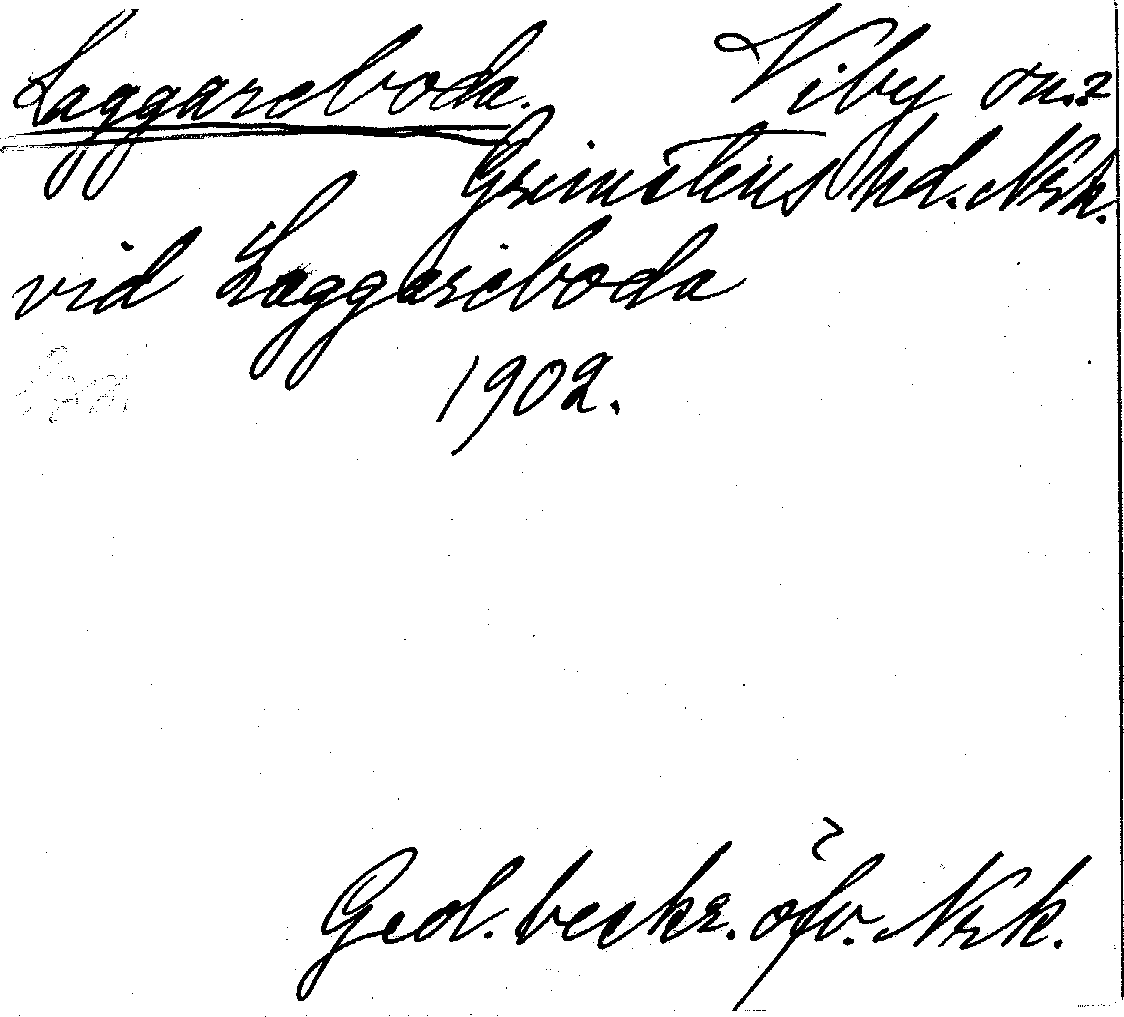 Laggarsboda. Viby sn.?
Grimstens hd. Nrk.
vid Laggarsboda
1902.
Geol. beskr. öfv. Nrk.